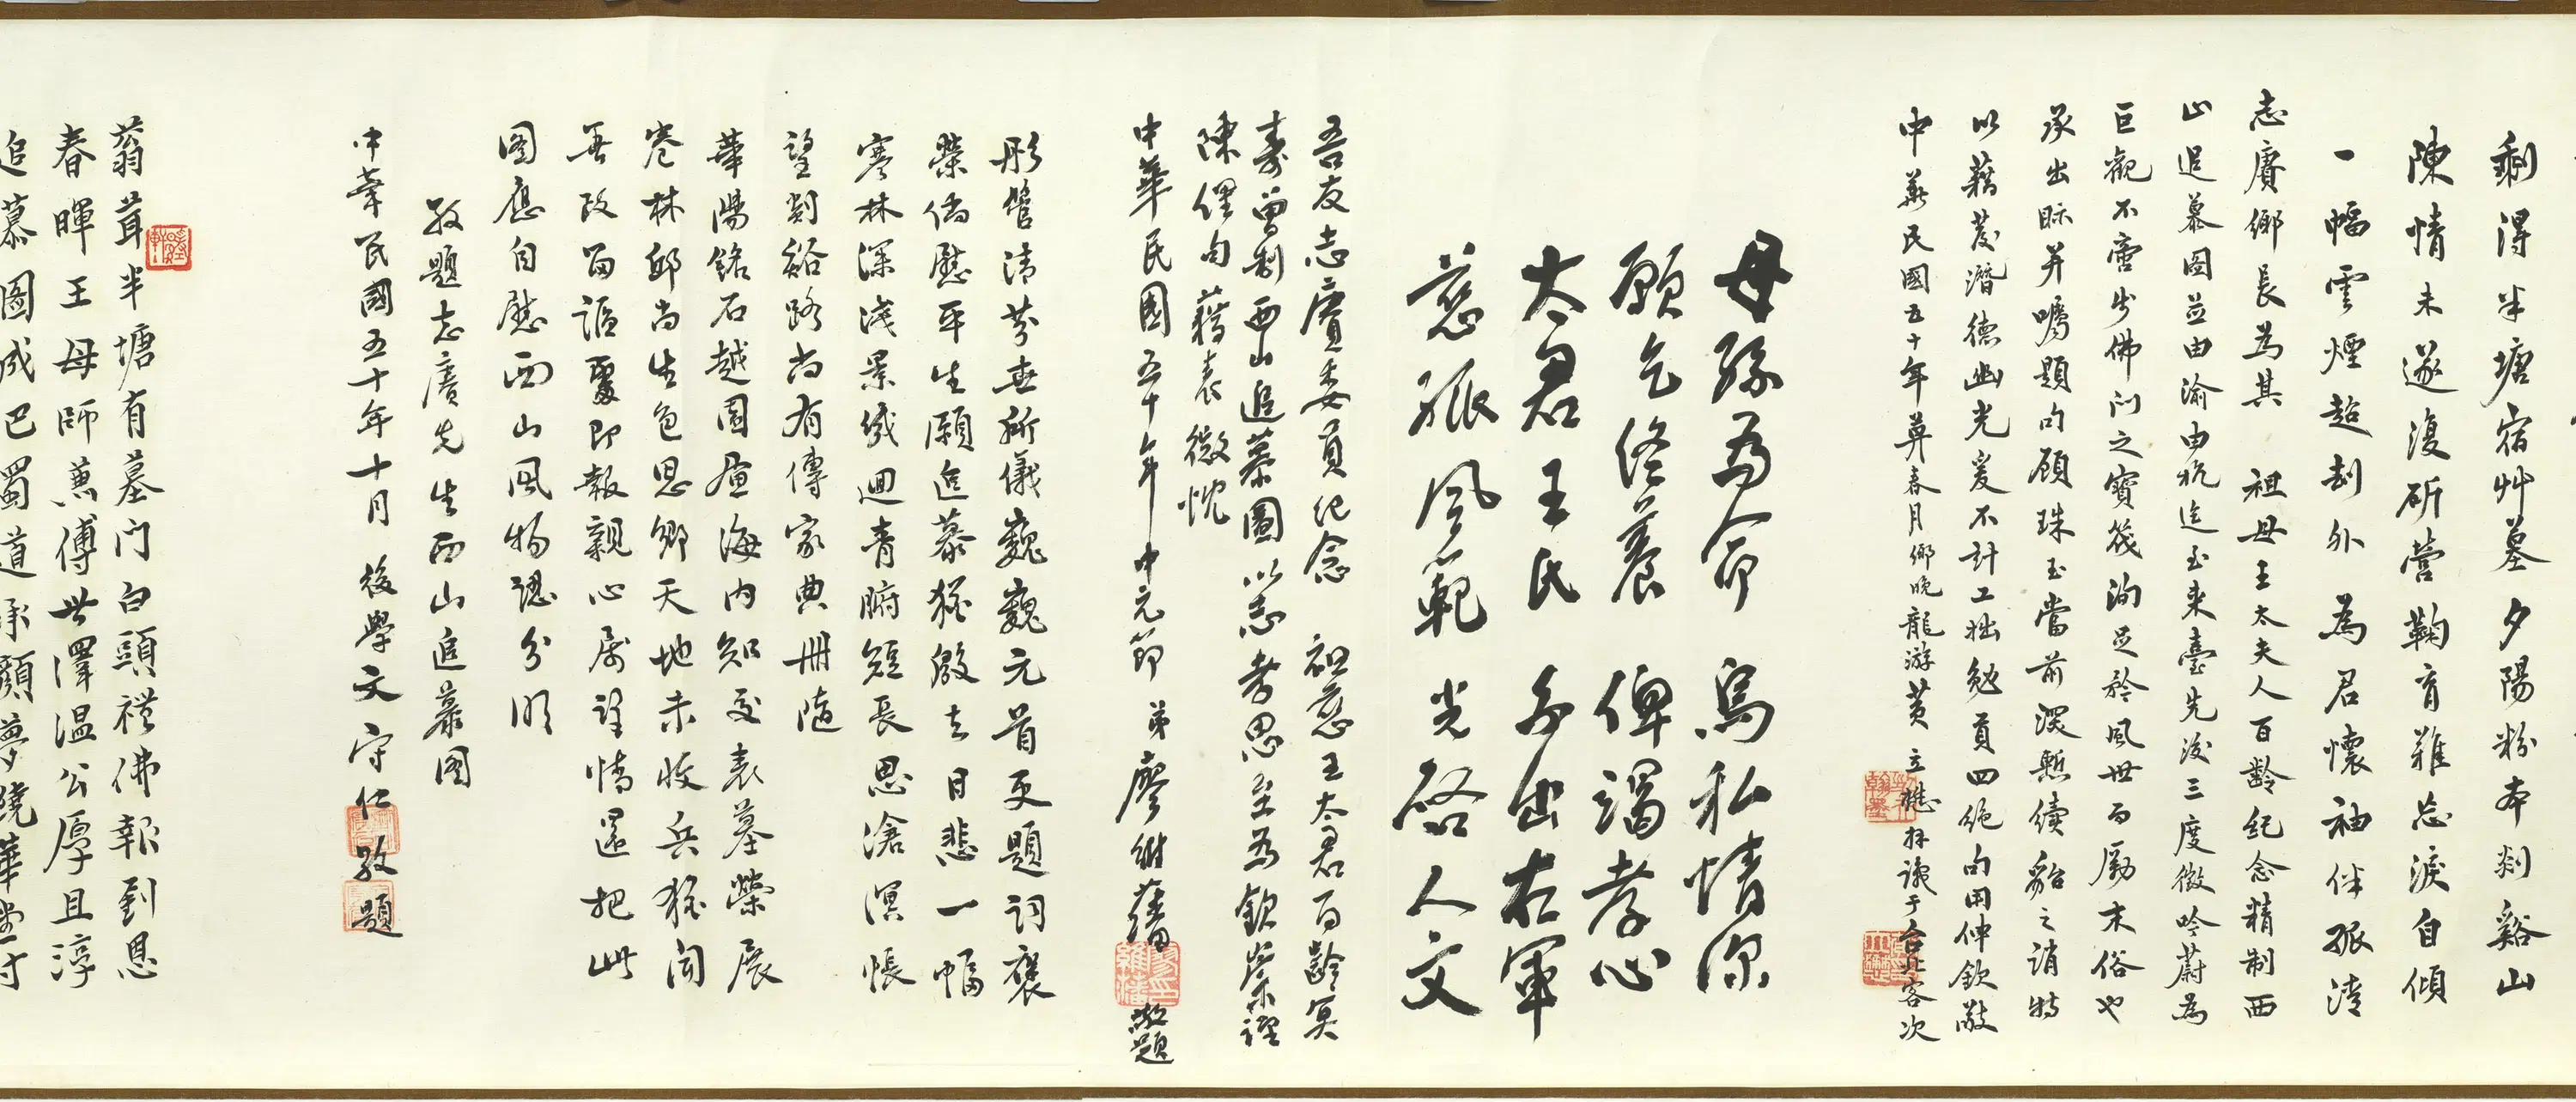 剩得半塘宿艸墓夕陽粉本剡谿山
陳情未遂復斫營鞠育難忘淚自傾
一幅雲煙超剨外為君懷袖伴孤清
志賡鄉長為其 祖母王太夫人百齡紀念精制西
山追慕圖並由渝由杭迄至來臺先後三度徵吟蔚為
巨觀不啻步佛门之寶筏洵足矜風世而勵末俗也
承出眎并囑題句顧珠玉當前深慙續貂之誚特
以藉發潛德幽光爰不計工拙勉貢四絕句用伸欽敬
中華民國五十年葬春月鄉晚龍游黃立懋拜識于台北客次
母孫為命 烏私情深
願乞終養 俾竭孝心
太君王氏 系出右軍
慈祇風範 光啓人文
吾友志賡委員紀念 祖慈王太君百齡冥
壽曾制西山追慕圖以志孝思至為欽崇謹
陳俚句藉表微忱
中華民國五十年中元節 弟廖維藩敬題
彤管清芬垂斾儀巍巍元首更題詞褒
榮倘慰平生願追慕猶殷去日悲一幅
寒林深淺景幾迴青腑短長思滄溟悵
望剡谿路尚有傳家典冊隨
華陽銘石越園畫海內知交表墓榮展
卷林邱尚生色思鄉天地未收兵猶聞
吾改留謳翼即報親心屬望情還把此
圖應自慰西山風物認分明
敬題志賡先生西山追慕图
中華民國五十年十月 後學文守仁敬題
蓊茸半塘有墓门白頭禮佛報到恩
春暉王母師蕙傅世澤温公厚且淳
追慕圖成巴蜀道承顏夢繞華堂